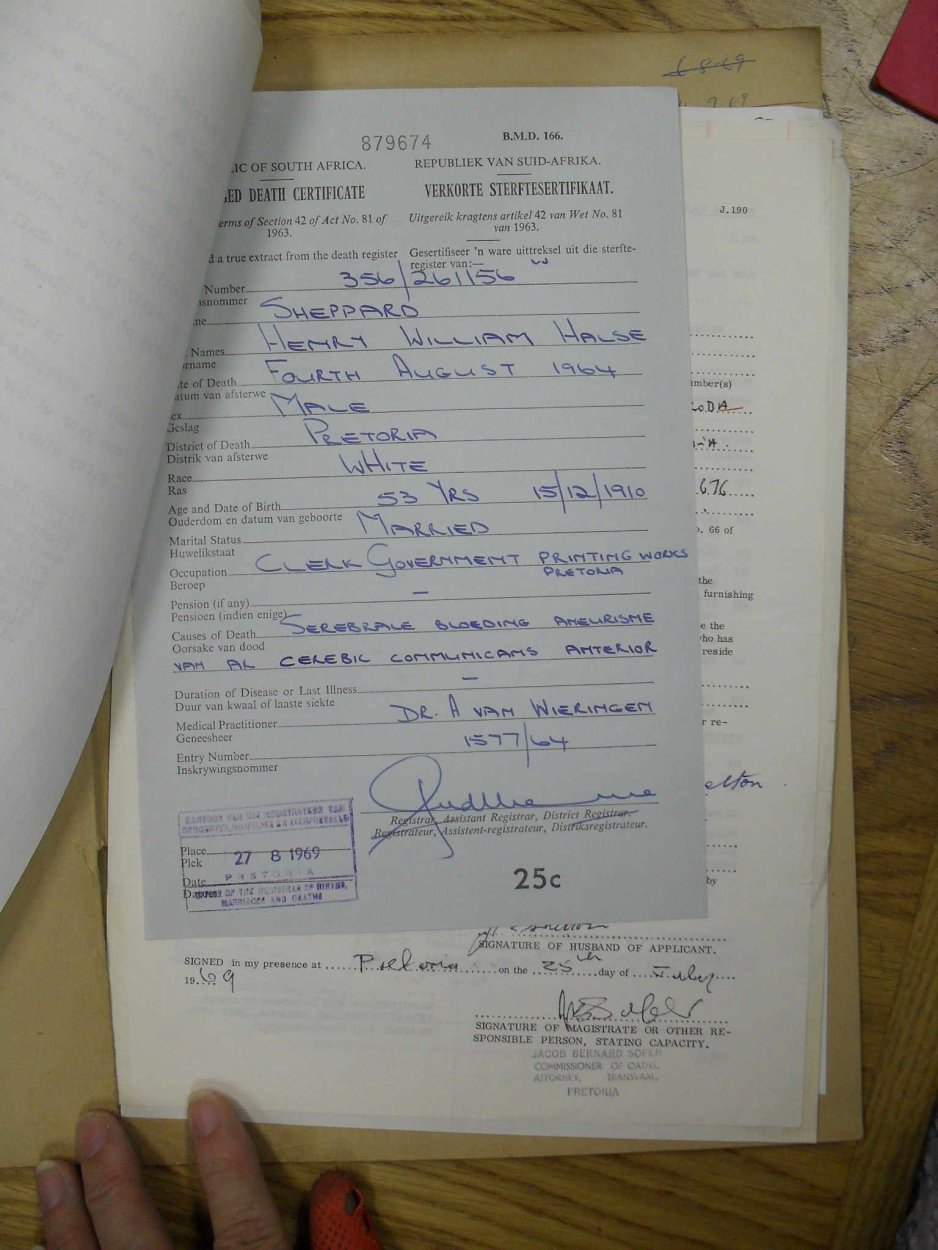 6-8-69
879674
B.M.D. 166.
IC OF SOUTH AFRICA.
REPUBLIEK VAN SUID-AFRIKA.
GED DEATH CERTIFICATE
VERKORTE STERFTESERTIFIKAAT.
erms of Section 42 of Act No. 81 of
1963.
Uitgereik kragtens artikel 42 van Wet No. 81
van 1963.
d a true extract from the death register
Gesertifiseer 'n ware uittreksel uit die sterfte-
register van:—
Number 356/261156
nsnommer
me SHEPPARD
Names HENRY WILLIAM HALSE
orname
te of Death FOURTH AUGUST 1964
atum van afsterwe
ex MALE
Geslag
District of Death PRETORIA
Distrik van afsterwe
Race WHITE
Ras
Age and Date of Birth 53 YRS 15/12/1910
Ouderdom en datum van geboorte
Marital Status MARRIED
Huwelikstaat
Occupation CLERK GOVERNMENT PRINTING WORKS
PRETORIA
Beroep
Pension (if any) —
Pensioen (indien enige)
Causes of Death SEREBRALE BLOEDING ANEURISME
Oorsake van dood
VAN AL CEREBIC COMMUNICANS ANTERIOR
Duration of Disease or Last Illness —
Duur van kwaal of laaste siekte
Medical Practitioner DR. A VAN WIERINGEN
Geneesheer
Entry Number 1577/64
Inskrywingsnommer
Registrar, Assistant Registrar, District Registrar.
Registrateur, Assistent-registrateur, Distriksregistrateur.
Place
Plek
27 8 1969
Date PRETORIA
OFFICE OF THE REGISTRAR OF BIRTHS,
MARRIAGES AND DEATHS
25c
J.190
mber(s)
676
. 66 of
the
furnishing
e the
ho has
reside
r re-
elton
by
SIGNATURE OF HUSBAND OF APPLICANT.
SIGNED in my presence at Pretoria on the 25th day of July
1969
SIGNATURE OF MAGISTRATE OR OTHER RE-
SPONSIBLE PERSON, STATING CAPACITY.
JACOB BERNARD SOFER
COMMISSIONER OF OATHS,
ATTORNEY, TRANSVAAL,
PRETORIA